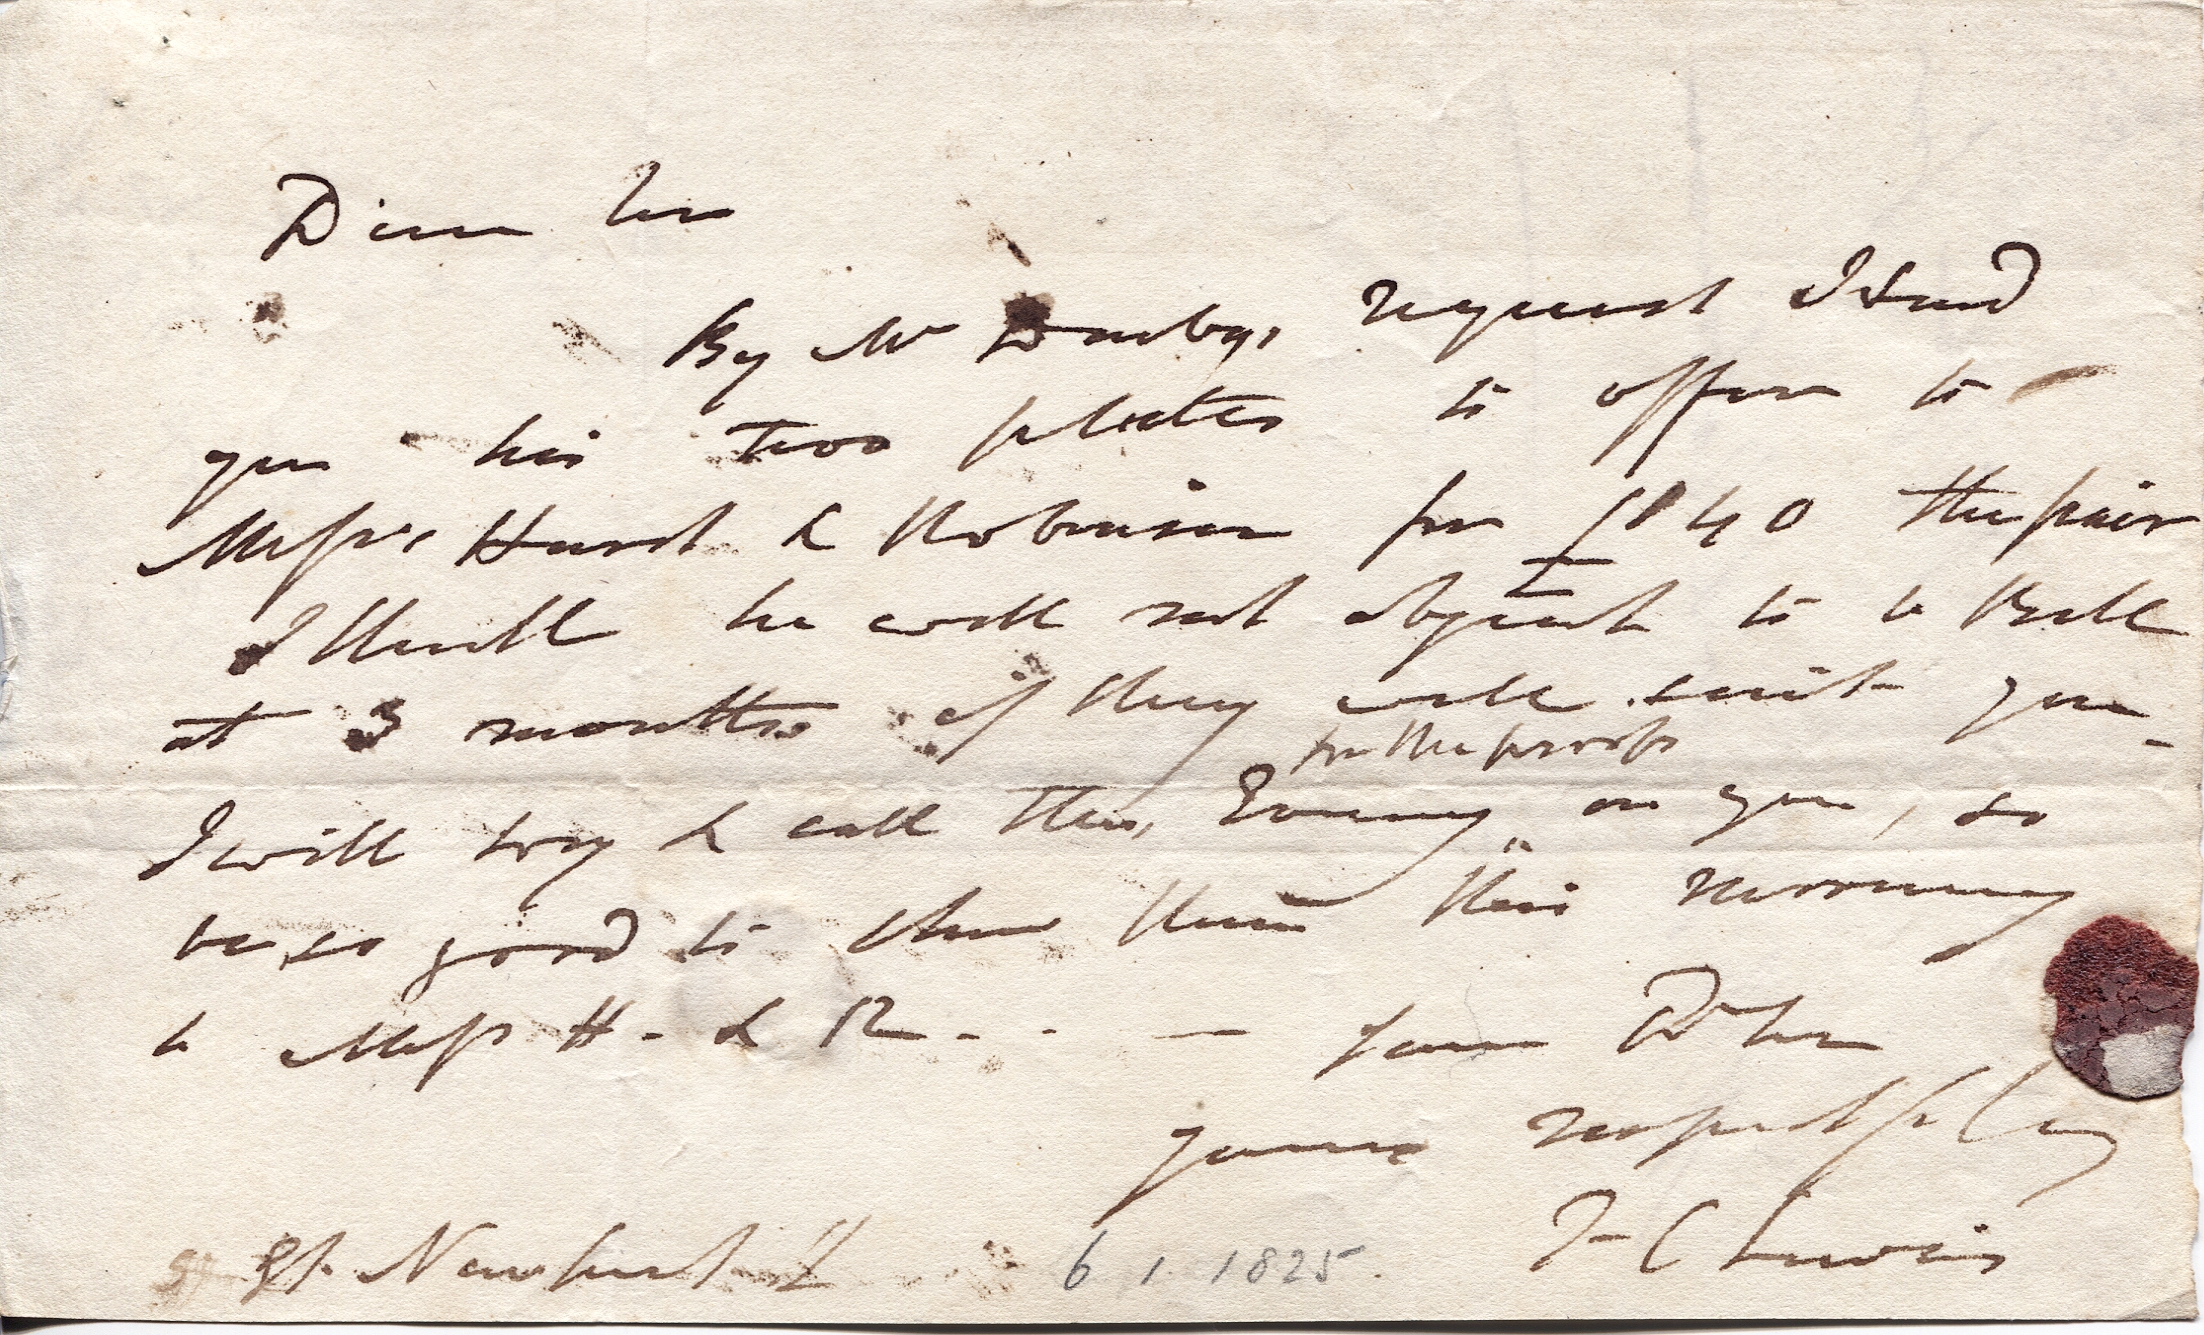 Dear Sir
By Mr Danbys request I send
you his two plates to offer to
Messrs Hurst & Robinson for £140 the pair
I think he will not object to a Bill
at 3 months if they will suit you -
for the proofs
I will try & call this Evening on you, so
be so good to shew them this morning
to Mess H. & R. -
I am Dr Sir
yours respectfully
F C Lewis
Newport St
6 1 1825.